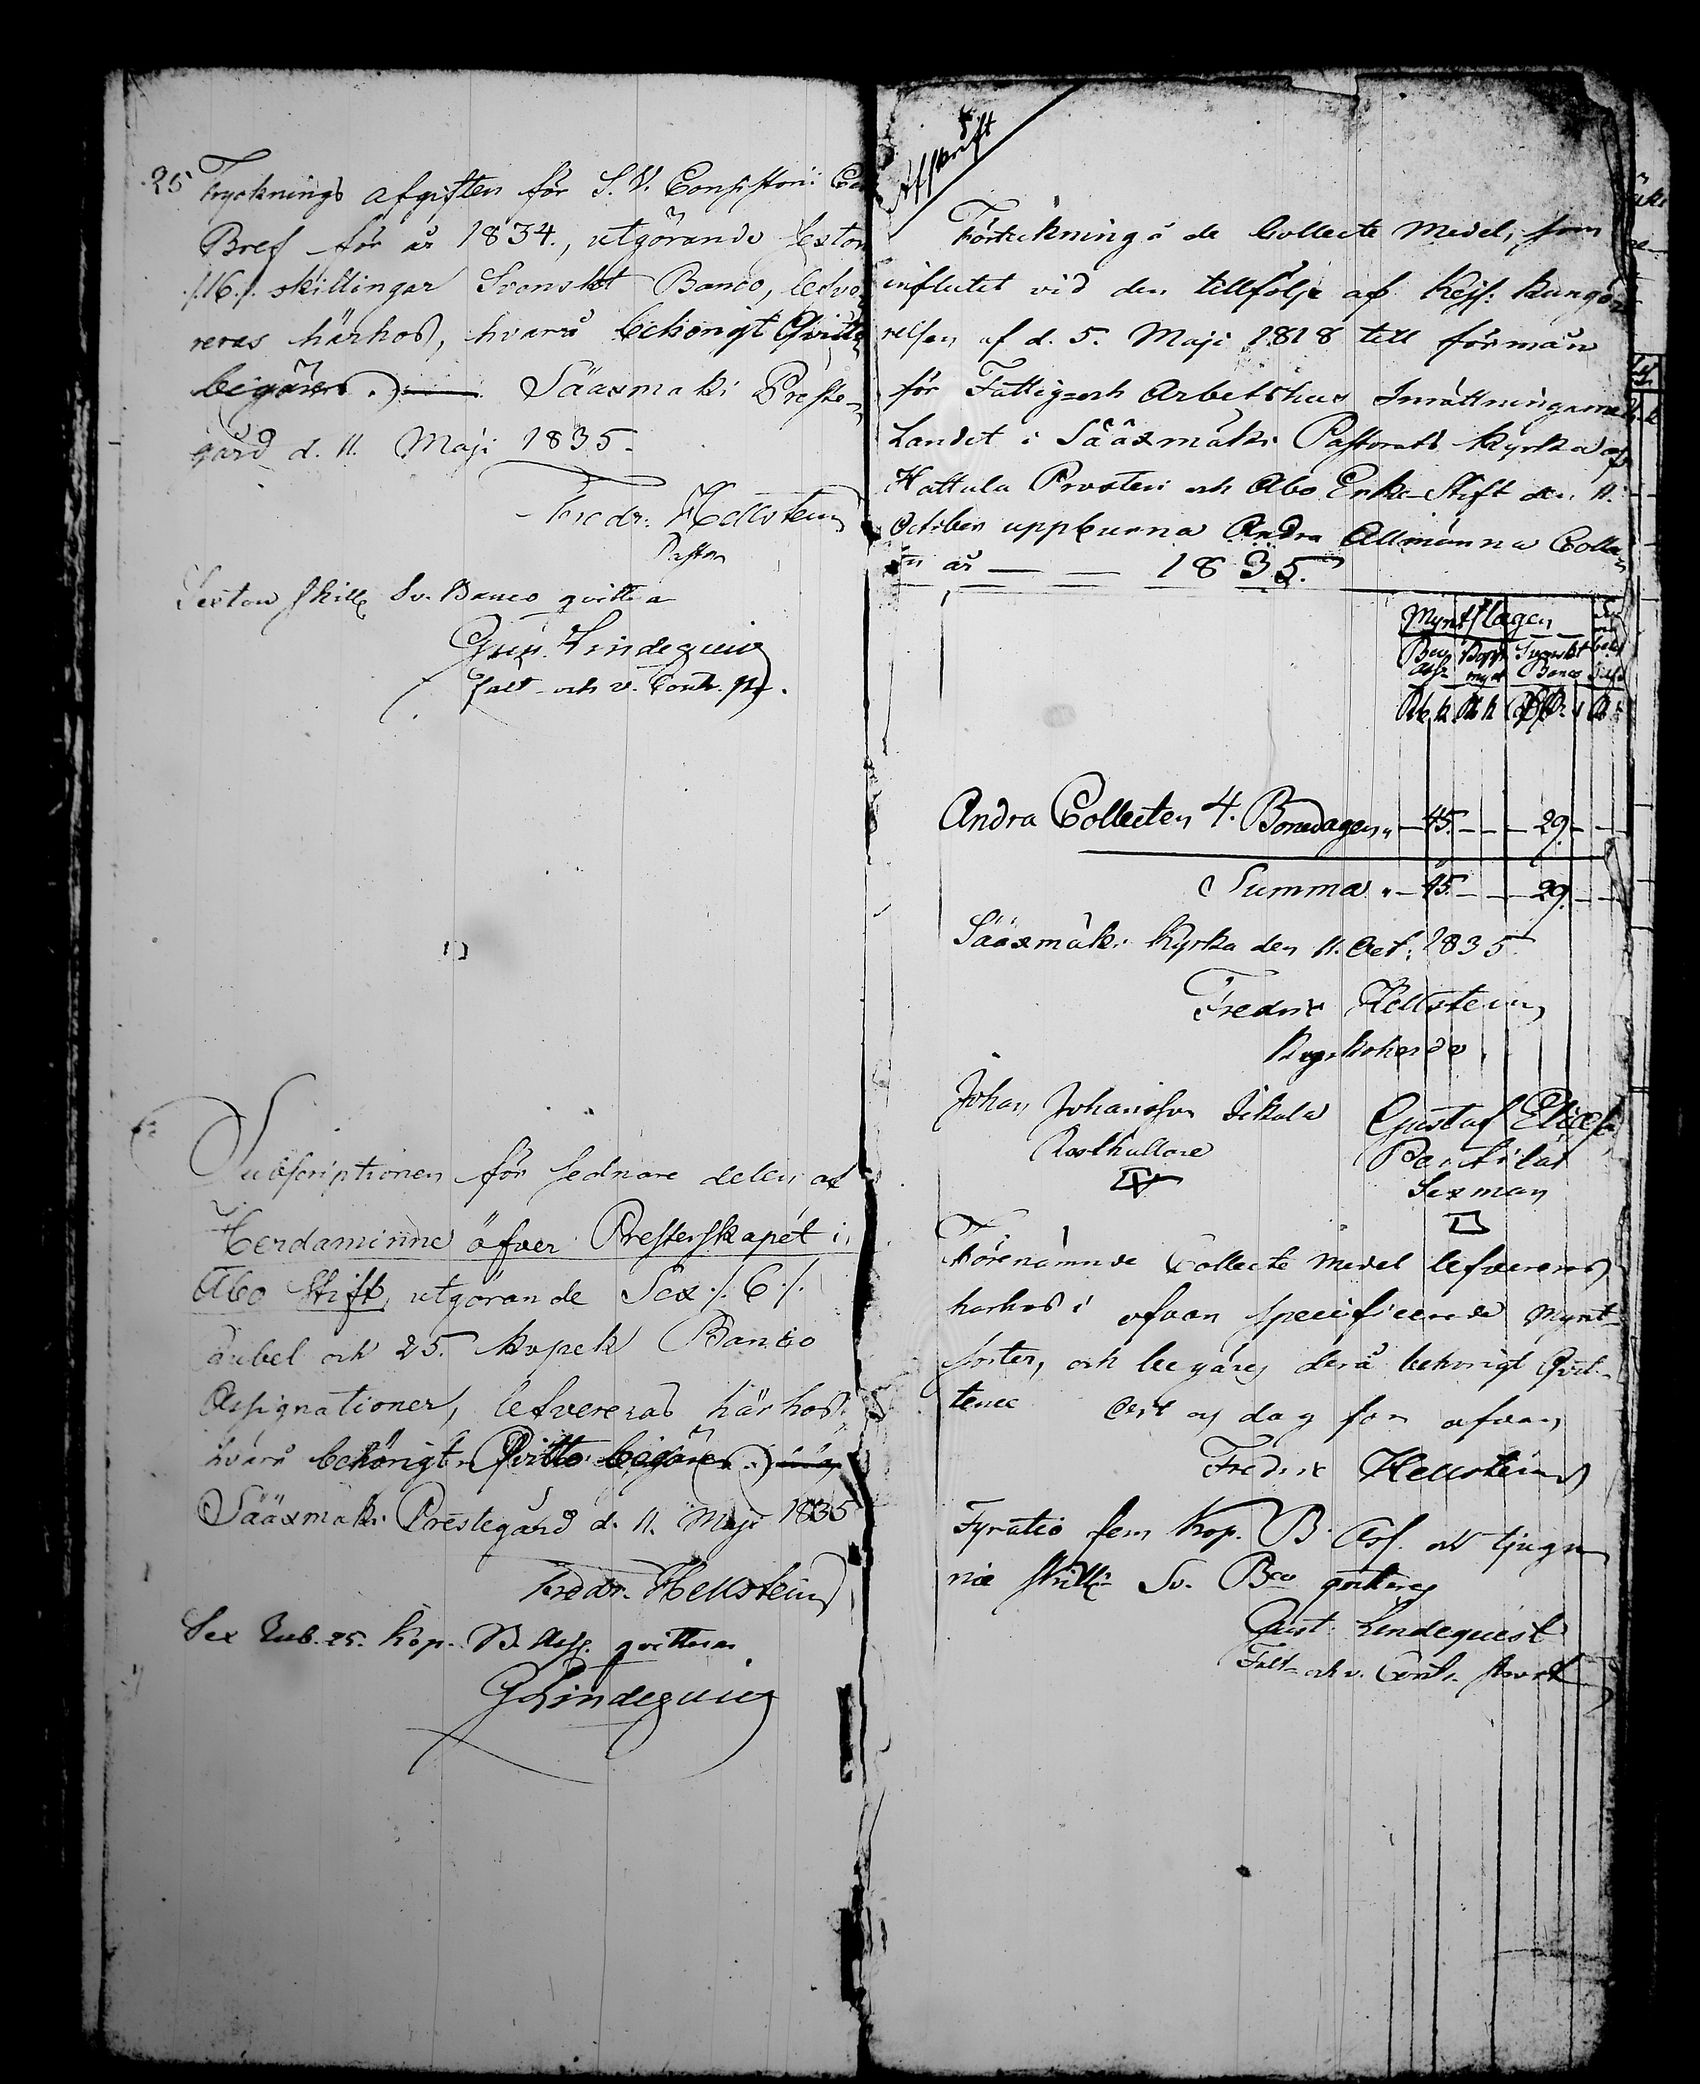 25 Trycknings afgiften för S. V. Consistorii
Bref för år 1834., utgörande Sexton
./.16./. skillingar Svenskt Banco, lefve-
reras härhos, hvarå behörigt Qvitto
begäres. Sääxmäki Preste-
gård d. 11. Maji 1835.
Fredr. Hellstein
Pastor
Sexton skill. Sv. Banco qvitteras
Gust. Lindequist
falt- och v. Cont.
Subscriptionen för sednare delen af
Herdaminne öfver Presterskapet i
Åbo Stift, utgörande Sex ./. 6 ./.
Rubel och 25. kopek Banco
Assignationer, lefvereras härhos,
hvarå behörigt Qvitto begäres.
Sääxmäki Prestegård d. 11. Maji 1835
Fredr. Hellstein
Sex Rub. 25. Kop. B. Ass. qvitteras
G Lindequist
Afskrift
Förtekning å de Collecte Medel, som
influtit vid den tillfölje af Kejs: Kungö-
relsen af d. 5. Maji 1818 till förmån
för Fattig- och Arbetshus Inrättningarne
Landet i Sääxmäki Pastorats Kyrka af
Hattula Prosteri och Åbo Erke-Stift den 11.
October uppburna Andra Allmänna Colle-
ten år — — 1835.
Myntslagen
Bco Kopp. Svenskt
Ass. mynt Banco
R k R k
Andra Collecten 4. Bönedagen " — 45. — — — 29. —
Summa " — 45. — — — 29. —
Sääxmäki Kyrka den 11. Oct: 1835.
Fredrik Hellstein
Kyrkoherde
Johan Johansson Gustaf
Rusthållare
Sexman
Förenämnde Collecte Medel lefvereras
härhos i ofvan specificerade Mynt-
sorter, och begäres derå behörigt Qvit-
tence Ort och dag som ofvan
Fredrik Hellstein
Fyratio fem Kop. B. Ass. och tjugu
nie skill. Sv. Bco qvitteras
Gust. Lindequist
Falt- och v. Cont.